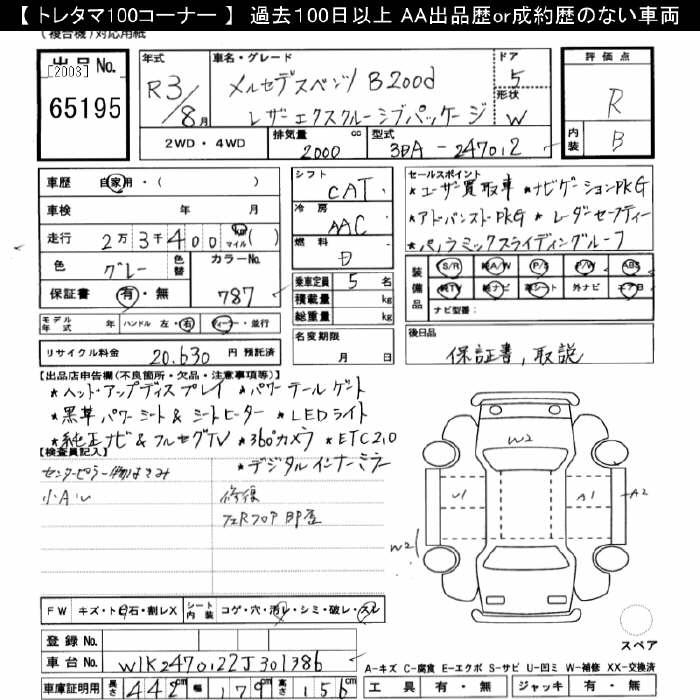 【 トレタマ100コーナー 】 過去100日以上 AA出品歴or成約歴のない車両
(複合機)対応用紙
出品No.
[2003]
65195
年式
R3/8月
車名・グレード
メルセデスベンツ B200d
レザーエクスクルーシブパッケージ
ドア
5
形状
W
評価点
R
内装
B
2WD・4WD
排気量 cc
2000
型式
3DA-247012
車歴 自家用・( )
車検 年 月
走行 2万3千400 km マイル ( )
色 グレー
色替
カラーNo.
787
保証書 有・無
シフト
CAT
冷房
AAC
燃料
D
乗車定員 5 名
積載量 kg
総重量 kg
セールスポイント
★ユーザー買取車 ★ナビゲーションPKG
★アドバンストPKG ★レーダーセーフティー
★パノラミックスライディングルーフ
装備品
S/R 純A/W P/S P/W ABS
純TV 純ナビ 革シート 外ナビ エア B
ナビ型番:
モデル年式 年 ハンドル 左・右 ディーラー・並行
リサイクル料金 20,630 円 預託済
名変期限
月 日
後日品
保証書,取説
【出品店申告欄(不良箇所・欠品・注意事項等)】
★ヘッドアップディスプレイ ★パワーテールゲート
★黒革パワーシート&シートヒーター ★LEDライト
★純正ナビ&フルセグTV ★360°カメラ ★ETC2.0
★デジタルインナーミラー
【検査員記入】
小AU
修復
W2
U1
A1
A2
W2
FW キズ・トビ石・割レX
シート内装 コゲ・穴・汚レ・シミ・破レ・スレ
登録No.
車台No. W1K2470122J301386
スペア
A-キズ C-腐食 E-エクボ S-サビ U-凹ミ W-補修 XX-交換済
車庫証明用 長さ 442cm 幅 179cm 高さ 156cm
工具 有・無 ジャッキ 有・無